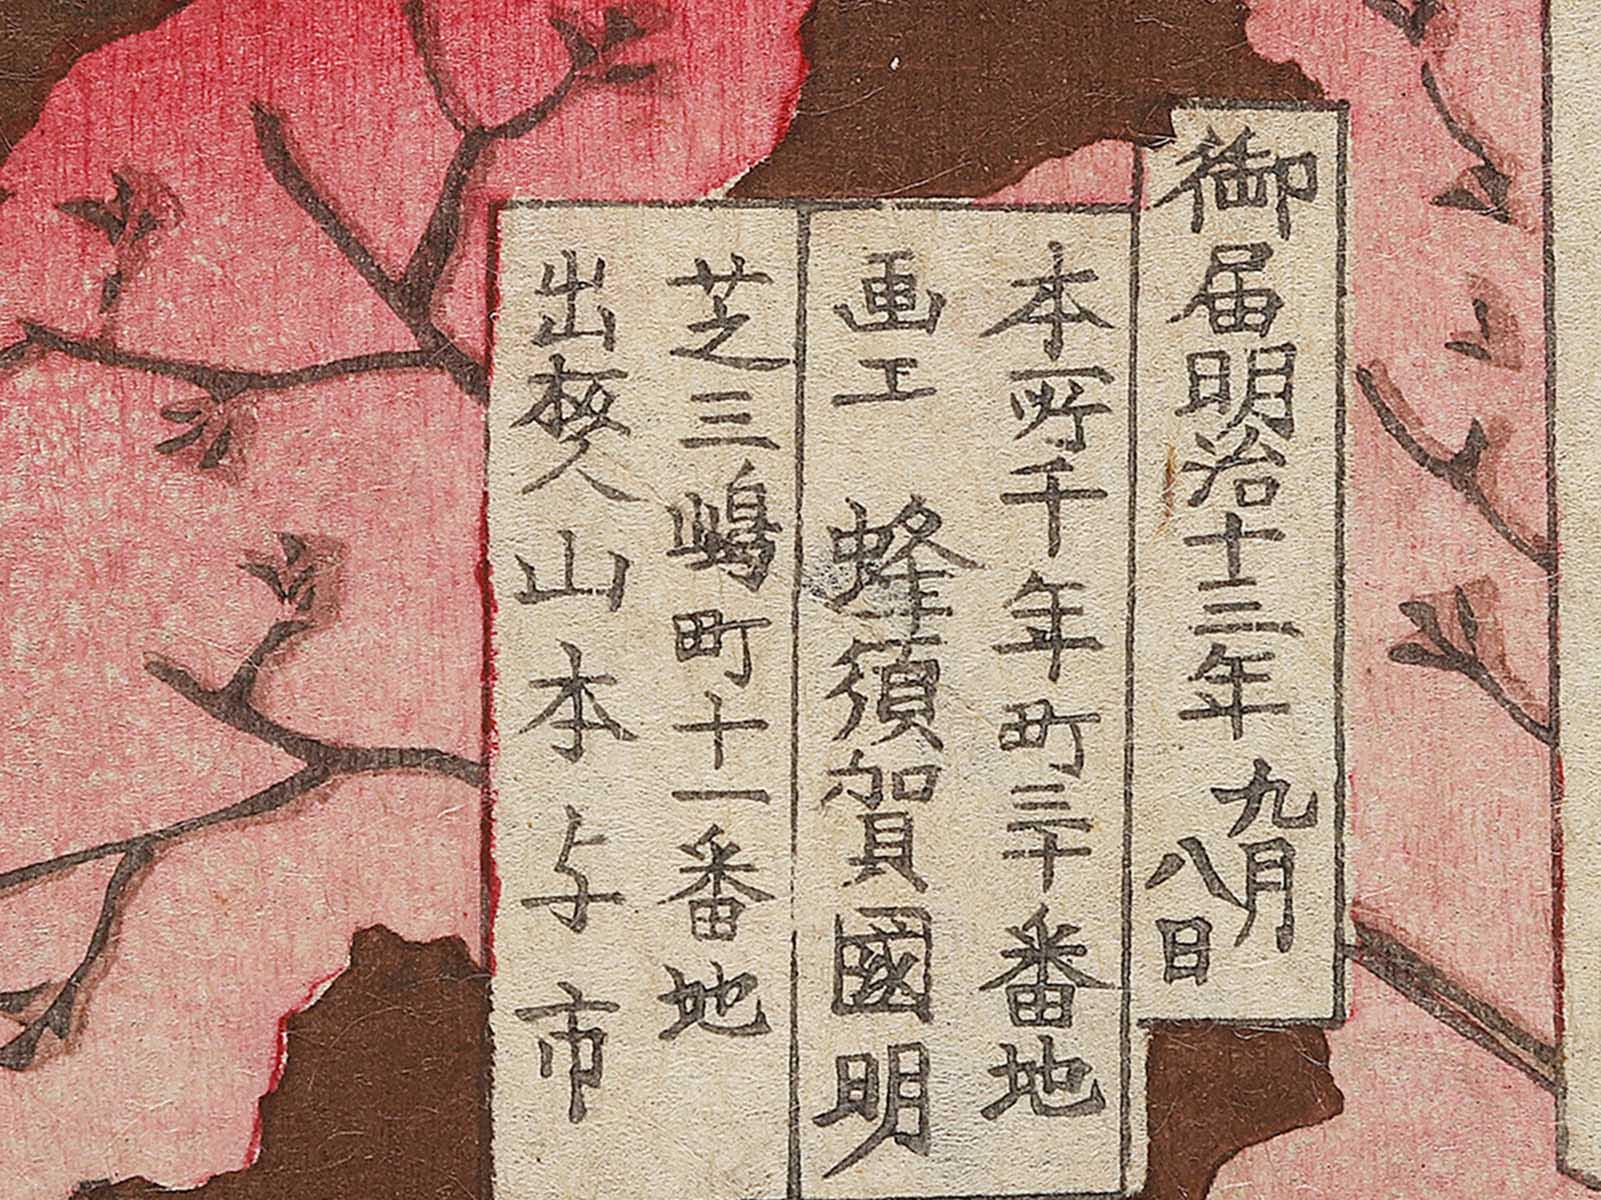 御届明治十三年九月八日
本所千年町三十番地
画工 蜂須賀國明
芝三嶋町十一番地
出板人 山本与市